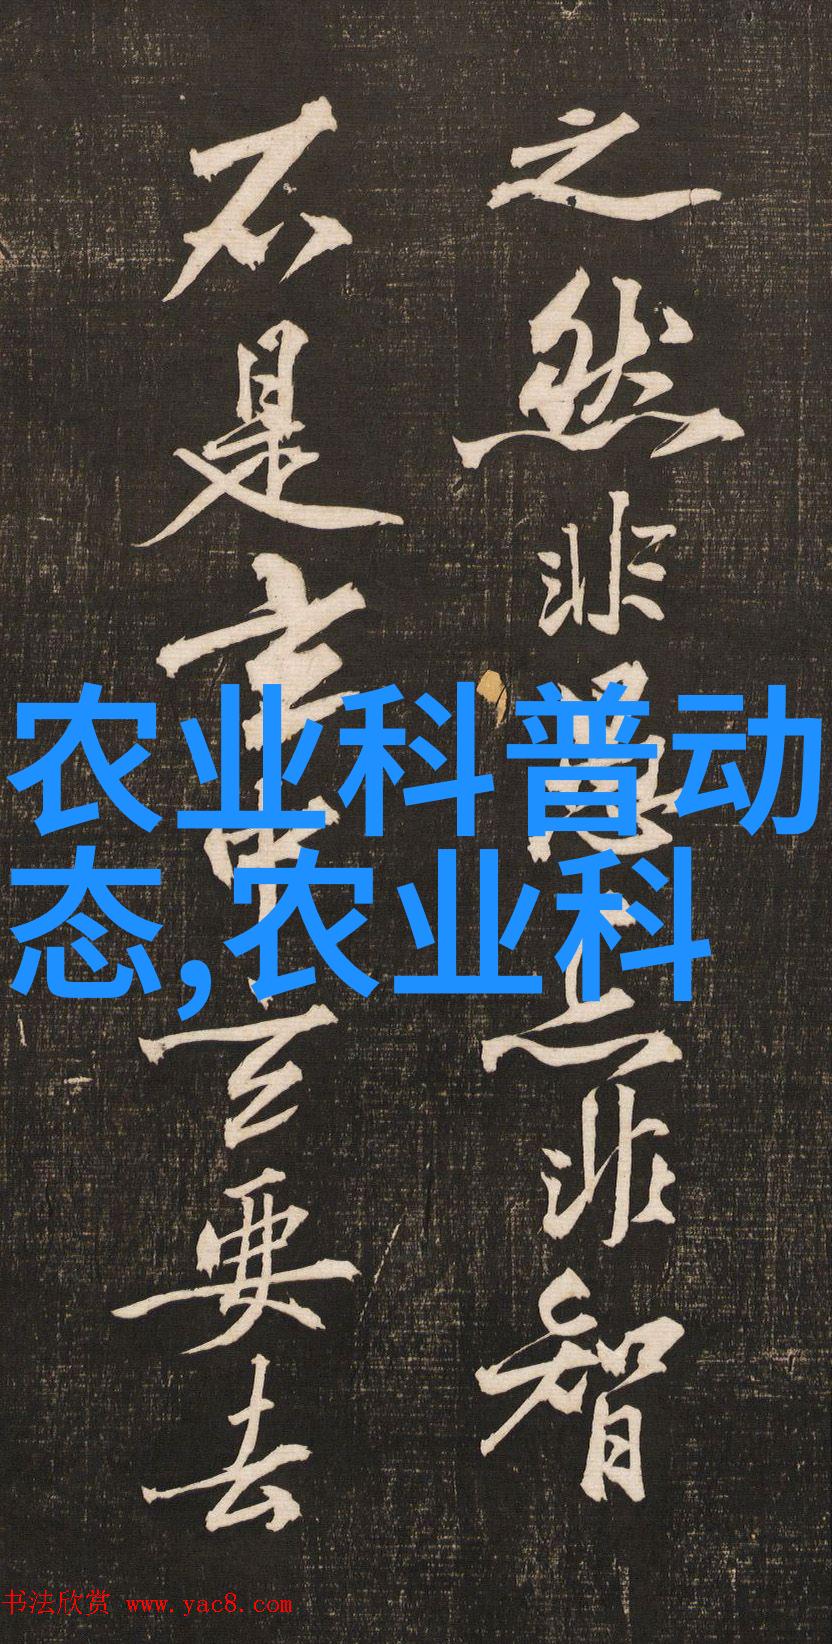 之然非非智
不是玄中玄要去
农业科普动
态,农业科
书法欣赏 www.yac8.com